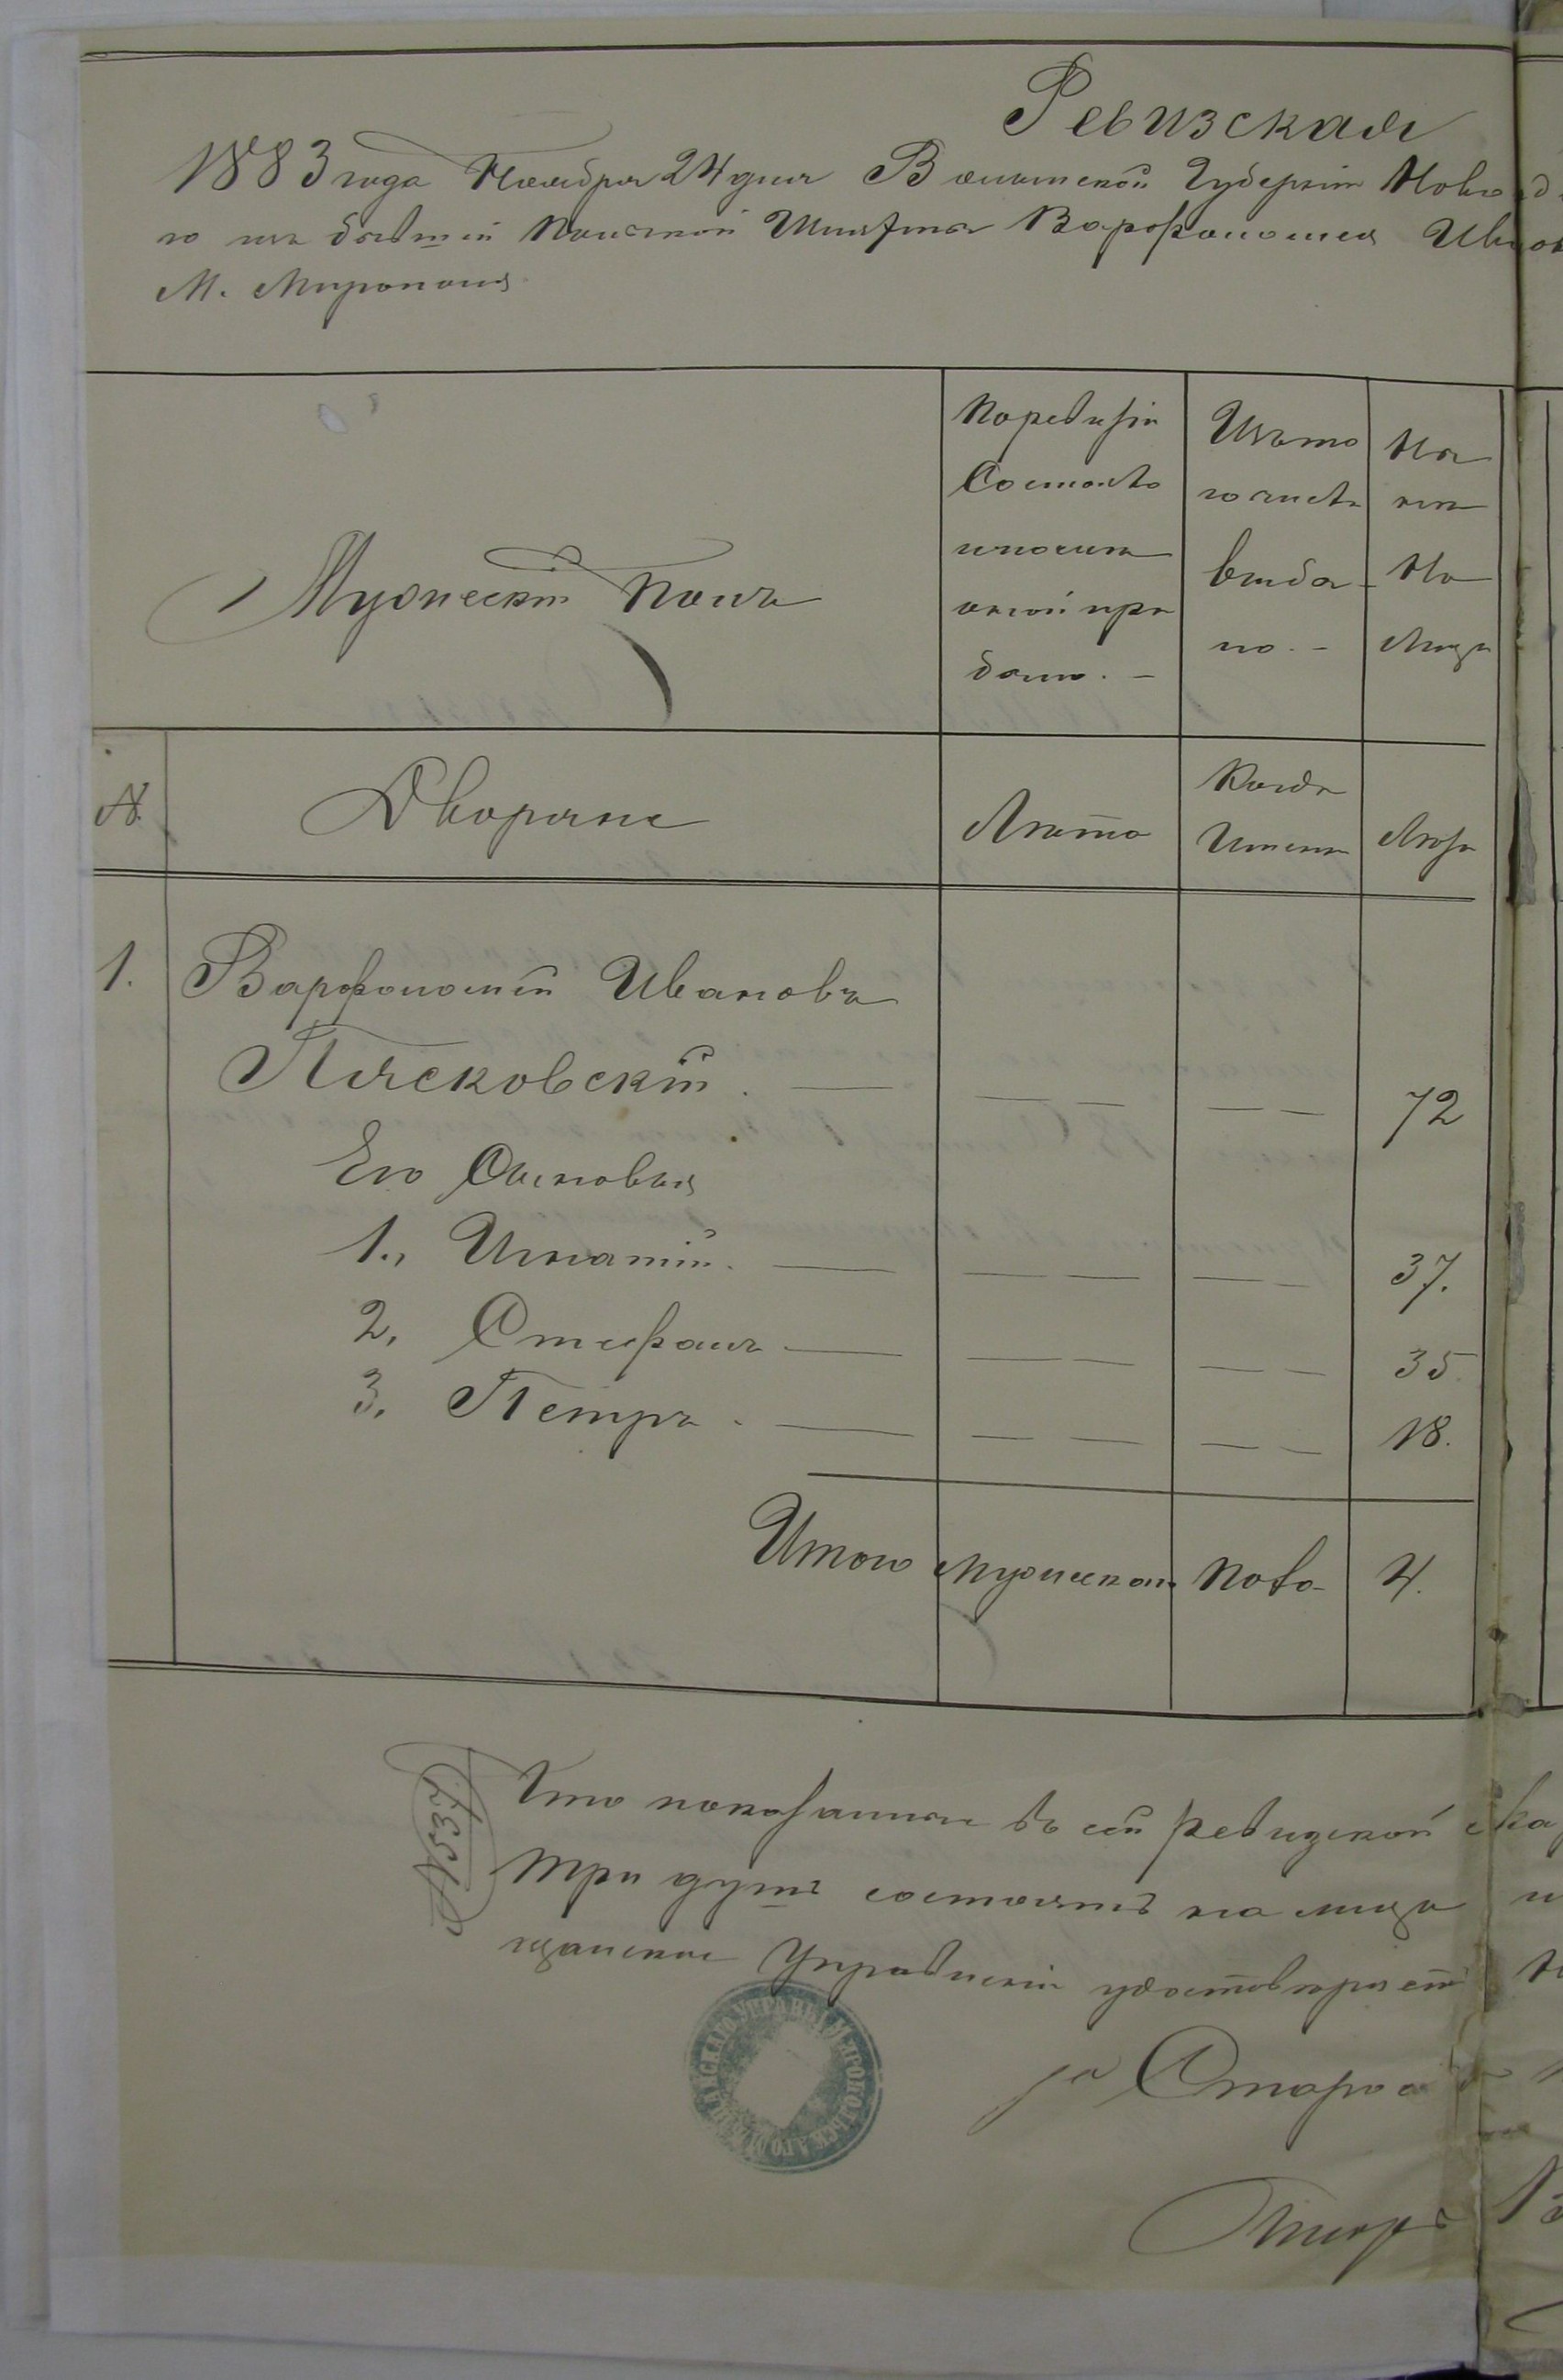 Ревизская
1883 года Ноября 24 дня Волынской Губерніи Ново
го изъ бывшей польской Шляхты Варфоломея Ив
М. Мирополя
Мужескій полъ
По ревизіи
Состояло
и после
оной при
было. –
Изъ то
го числа
выбы-
ло. –
На
ли
Ли
№
Дворяне
Лѣта
Когда
Имен
Лѣта
1. Варфоломей Ивановъ
Пясковскій. — — — — 72
Его Сыновья
1., Игнатій. — — — — — 37.
2, Стефанъ — — — — — 35.
3, Петръ. — — — — — 18.
Итого мужеска пола 4.
Что показанные въ сей ревизской ска
Три душъ состоятъ на лицо
щанское Управленіе удостовѣряетъ
за Старос
Писарь